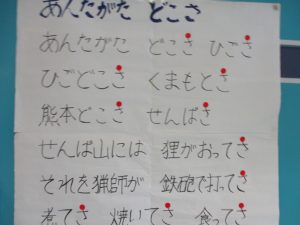 あんたがた どこさ
あんたがた どこさ ひごさ
ひごどこさ くまもとさ
熊本どこさ せんばさ
せんば山には 狸がおってさ
それを猟師が 鉄砲で打ってさ
煮てさ 焼いてさ 食ってさ